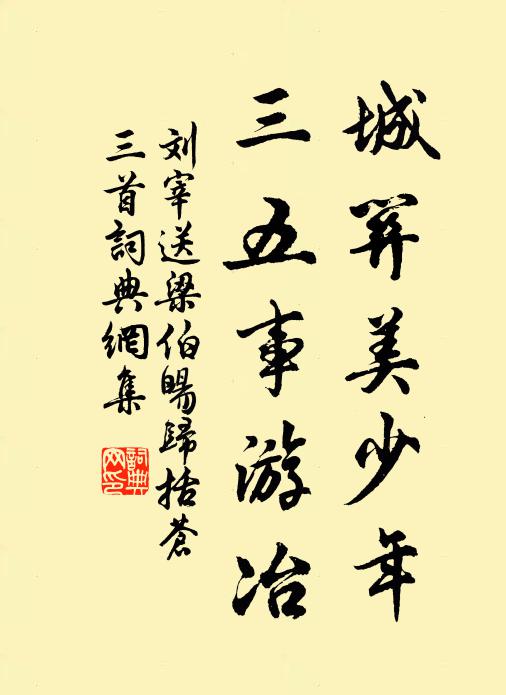 城美少年
三五事游冶
刘宰送梁伯暘歸括蒼
三首詞典網集
詞典网印